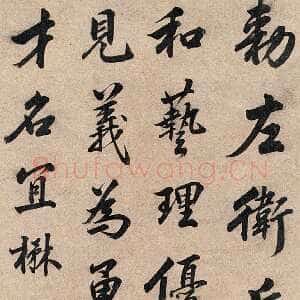 勅左衛
和藝理優
見義為勇
才名宜楙
shufawang.CN